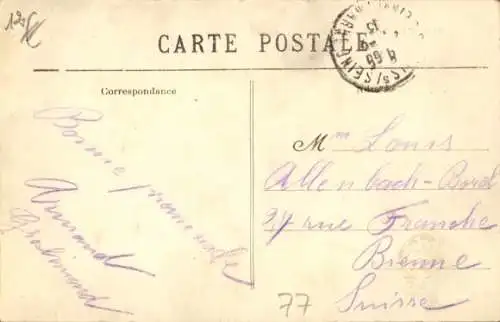 CARTE POSTALE
Correspondance
Bonne promenade
Armand
Mme Louis
Allenbach-Borel
27 rue Franche
Bienne
Suisse
77